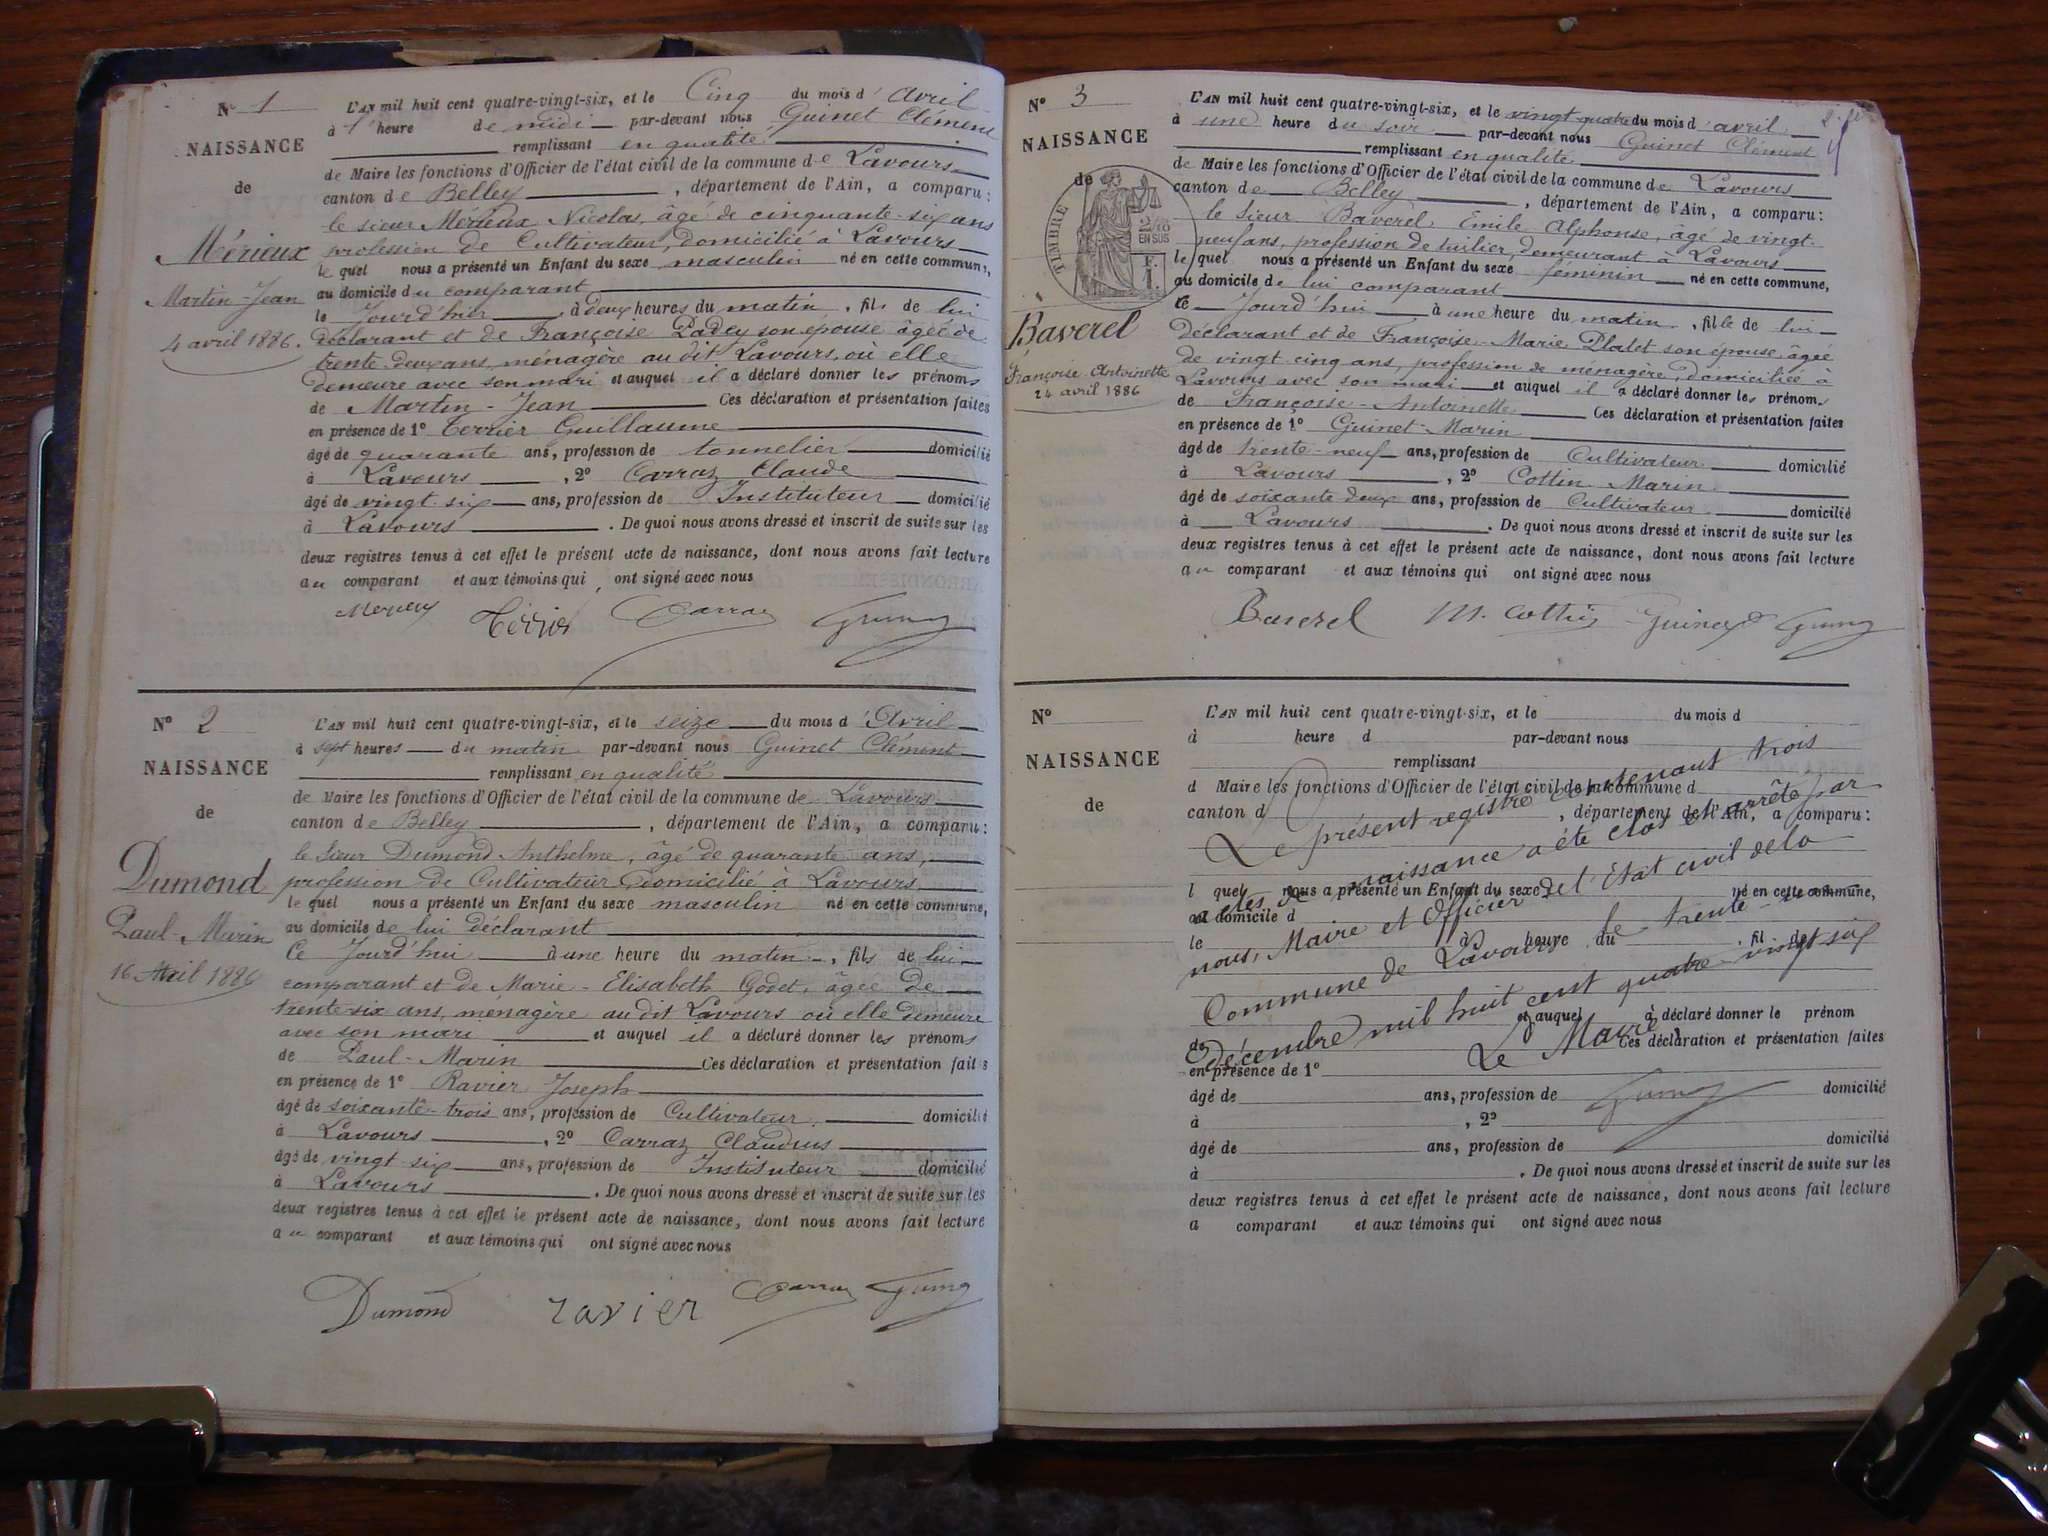 N° 1
NAISSANCE
de
Mérieux
Martin-Jean
4 avril 1886.
L'AN mil huit cent quatre-vingt-six, et le Cinq du mois d'avril
à 1 heure de midi par-devant nous Guinet Clément
remplissant en qualité
de Maire les fonctions d'Officier de l'état civil de la commune de Lavours
canton de Belley, département de l'Ain, a comparu:
le sieur Mérieux Nicolas, âgé de cinquante-six ans
profession de Cultivateur, domicilié à Lavours
le quel nous a présenté un Enfant du sexe masculin né en cette commune,
au domicile du comparant
le jourd'hui à deux heures du matin, fils de lui
déclarant et de Françoise Padey son épouse âgée de
trente deux ans, ménagère au dit Lavours, où elle
demeure avec son mari et auquel il a déclaré donner les prénoms
de Martin-Jean Ces déclaration et présentation faites
en présence de 1° Terrier Guillaume
âgé de quarante ans, profession de tonnelier domicilié
à Lavours, 2° Carraz Claude
âgé de vingt six ans, profession de Instituteur domicilié
à Lavours. De quoi nous avons dressé et inscrit de suite sur les
deux registres tenus à cet effet le présent acte de naissance, dont nous avons fait lecture
au comparant et aux témoins qui ont signé avec nous
Merieux Terrier Carraz
N° 2
NAISSANCE
de
Dumond
Paul-Marin
16 Avril 1886
L'AN mil huit cent quatre-vingt-six, et le seize du mois d'Avril
à sept heures du matin par-devant nous Guinet Clément
remplissant en qualité
de Maire les fonctions d'Officier de l'état civil de la commune de Lavours
canton de Belley, département de l'Ain, a comparu:
le sieur Dumond Anthelme, âgé de quarante ans,
profession de Cultivateur Domicilié à Lavours
le quel nous a présenté un Enfant du sexe masculin né en cette commune,
au domicile de lui déclarant
Ce Jourd'hui à une heure du matin, fils de lui
comparant et de Marie-Elisabeth Godet, âgée de
trente-six ans, ménagère au dit Lavours où elle demeure
avec son mari et auquel il a déclaré donner les prénoms
de Paul-Marin Ces déclaration et présentation faites
en présence de 1° Ravier Joseph
âgé de soixante-trois ans, profession de Cultivateur domicilié
à Lavours, 2° Carraz Claudius
âgé de vingt six ans, profession de Instituteur domicilié
à Lavours. De quoi nous avons dressé et inscrit de suite sur les
deux registres tenus à cet effet le présent acte de naissance, dont nous avons fait lecture
au comparant et aux témoins qui ont signé avec nous
Dumond ravier Carraz
N° 3
NAISSANCE
de
TIMBRE
2/10
EN SUS
Baverel
Françoise Antoinette
24 avril 1886
L'AN mil huit cent quatre-vingt-six, et le vingt quatre du mois d'avril
à une heure du soir par-devant nous Guinet Clément
remplissant en qualité
de Maire les fonctions d'Officier de l'état civil de la commune de Lavours
canton de Belley, département de l'Ain, a comparu:
le Sieur Baverel Emile Alphonse, âgé de vingt-
neuf ans, profession de tuilier, demeurant à Lavours
le quel nous a présenté un Enfant du sexe féminin né en cette commune,
au domicile de lui comparant
ce Jourd'hui à une heure du matin, fille de lui
déclarant et de Françoise-Marie Platet son épouse, âgée
de vingt cinq ans, profession de ménagère, domiciliée à
Lavours avec son mari et auquel il a déclaré donner les prénoms
de Françoise-Antoinette Ces déclaration et présentation faites
en présence de 1° Guinet Marin
âgé de trente-neuf ans, profession de Cultivateur domicilié
à Lavours, 2° Cottin Marin
âgé de soixante deux ans, profession de Cultivateur domicilié
à Lavours. De quoi nous avons dressé et inscrit de suite sur les
deux registres tenus à cet effet le présent acte de naissance, dont nous avons fait lecture
au comparant et aux témoins qui ont signé avec nous
Baverel M. Cottin Guinet
N°
NAISSANCE
de
L'AN mil huit cent quatre-vingt-six, et le du mois d
à heure d par-devant nous
remplissant
d Maire les fonctions d'Officier de l'état civil de la commune d
canton d, département de l'Ain, a comparu:
l quel nous a présenté un Enfant du sexe né en cette commune,
au domicile d
le à heure du, fil de
et auquel a déclaré donner le prénom
de Ces déclaration et présentation faites
en présence de 1°
âgé de ans, profession de domicilié
à, 2°
âgé de ans, profession de domicilié
à. De quoi nous avons dressé et inscrit de suite sur les
deux registres tenus à cet effet le présent acte de naissance, dont nous avons fait lecture
a comparant et aux témoins qui ont signé avec nous
Le présent registre contenant trois
actes de naissance a été clos et arrêté par
nous, Maire et Officier de l'Etat civil de la
Commune de Lavours le trente-un
décembre mil huit cent quatre-vingt six
Le Maire,